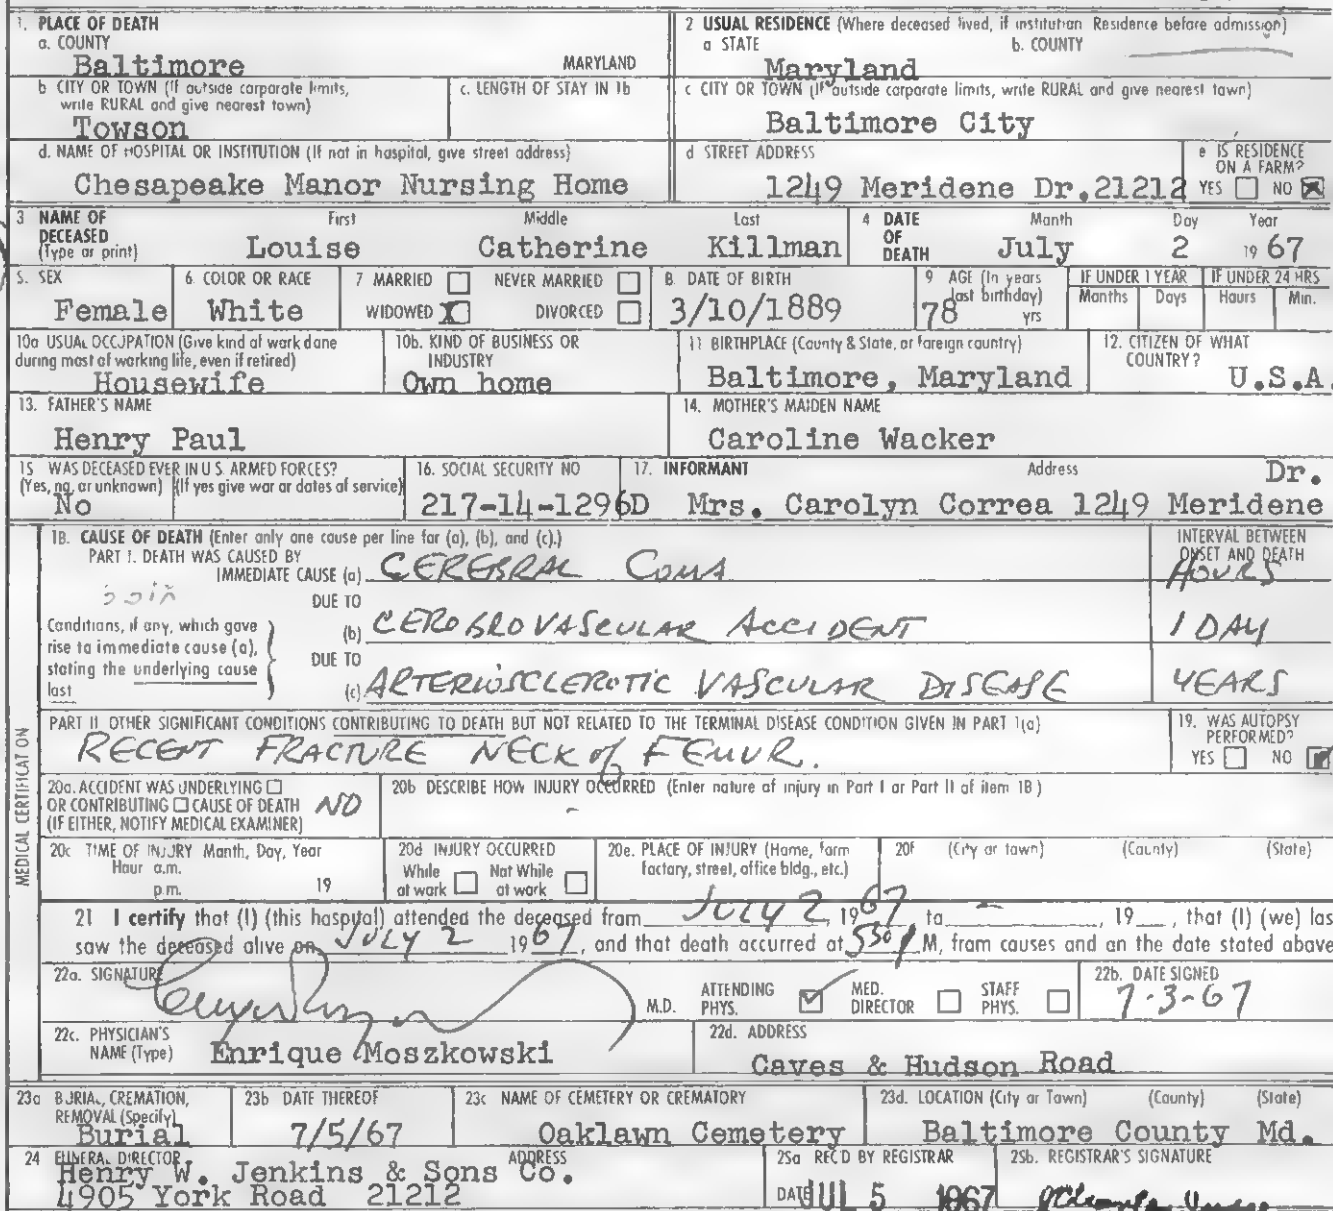 1. PLACE OF DEATH
a. COUNTY
Baltimore MARYLAND
2 USUAL RESIDENCE (Where deceased lived, if institution Residence before admission)
a STATE b. COUNTY
Maryland
b CITY OR TOWN (If outside corporate limits, write RURAL and give nearest town)
Towson
c. LENGTH OF STAY IN 1b
c CITY OR TOWN (If outside corporate limits, write RURAL and give nearest town)
Baltimore City
d. NAME OF HOSPITAL OR INSTITUTION (If not in hospital, give street address)
Chesapeake Manor Nursing Home
d STREET ADDRESS
1249 Meridene Dr.21212
e IS RESIDENCE ON A FARM?
YES NO
3 NAME OF DECEASED (Type or print)
First Middle Last
Louise Catherine Killman
4 DATE OF DEATH
Month Day Year
July 2 1967
5. SEX
Female
6 COLOR OR RACE
White
7 MARRIED NEVER MARRIED
WIDOWED X DIVORCED
8 DATE OF BIRTH
3/10/1889
9 AGE (In years last birthday)
78 yrs
IF UNDER 1 YEAR IF UNDER 24 HRS
Months Days Hours Min.
10a USUAL OCCUPATION (Give kind of work done during most of working life, even if retired)
Housewife
10b. KIND OF BUSINESS OR INDUSTRY
Own home
11 BIRTHPLACE (County & State, or foreign country)
Baltimore, Maryland
12. CITIZEN OF WHAT COUNTRY?
U.S.A.
13. FATHER'S NAME
Henry Paul
14. MOTHER'S MAIDEN NAME
Caroline Wacker
15 WAS DECEASED EVER IN U S. ARMED FORCES?
(Yes, no, or unknown) (If yes give war or dates of service)
No
16. SOCIAL SECURITY NO
217-14-1296D
17. INFORMANT Address Dr.
Mrs. Carolyn Correa 1249 Meridene
MEDICAL CERTIFICATION
18. CAUSE OF DEATH (Enter only one cause per line for (a), (b), and (c).)
PART I. DEATH WAS CAUSED BY
IMMEDIATE CAUSE (a) CEREBRAL COMA
INTERVAL BETWEEN ONSET AND DEATH
HOURS
DUE TO
Conditions, if any, which gave rise to immediate cause (a), stating the underlying cause last
(b) CEROBROVASCULAR ACCIDENT 1 DAY
DUE TO
(c) ARTERIOSCLEROTIC VASCULAR DISEASE YEARS
PART II OTHER SIGNIFICANT CONDITIONS CONTRIBUTING TO DEATH BUT NOT RELATED TO THE TERMINAL DISEASE CONDITION GIVEN IN PART I(a)
RECENT FRACTURE NECK of FEMUR.
19. WAS AUTOPSY PERFORMED?
YES NO
20a. ACCIDENT WAS UNDERLYING
OR CONTRIBUTING CAUSE OF DEATH NO
(IF EITHER, NOTIFY MEDICAL EXAMINER)
20b DESCRIBE HOW INJURY OCCURRED (Enter nature of injury in Part I or Part II of item 18)
20c TIME OF INJURY Month, Day, Year
Hour a.m.
p m. 19
20d INJURY OCCURRED
While at work Not While at work
20e. PLACE OF INJURY (Home, farm factory, street, office bldg., etc.)
20f (City or town) (County) (State)
21 I certify that (I) (this hospital) attended the deceased from JULY 2 1967 to - , 19 , that (I) (we) las
saw the deceased alive on JULY 2 1967, and that death occurred at 530 P M, from causes and on the date stated above
22a. SIGNATURE
M.D. ATTENDING PHYS. MED. DIRECTOR STAFF PHYS.
22b. DATE SIGNED
7-3-67
22c. PHYSICIAN'S NAME (Type) Enrique Moszkowski
22d. ADDRESS
Caves & Hudson Road
23a BURIAL, CREMATION, REMOVAL (Specify)
Burial
23b DATE THEREOF
7/5/67
23c NAME OF CEMETERY OR CREMATORY
Oaklawn Cemetery
23d. LOCATION (City or Town) (County) (State)
Baltimore County Md.
24 FUNERAL DIRECTOR ADDRESS
Henry W. Jenkins & Sons Co.
4905 York Road 21212
25a REC'D BY REGISTRAR
DATE JUL 5 1967
25b. REGISTRAR'S SIGNATURE